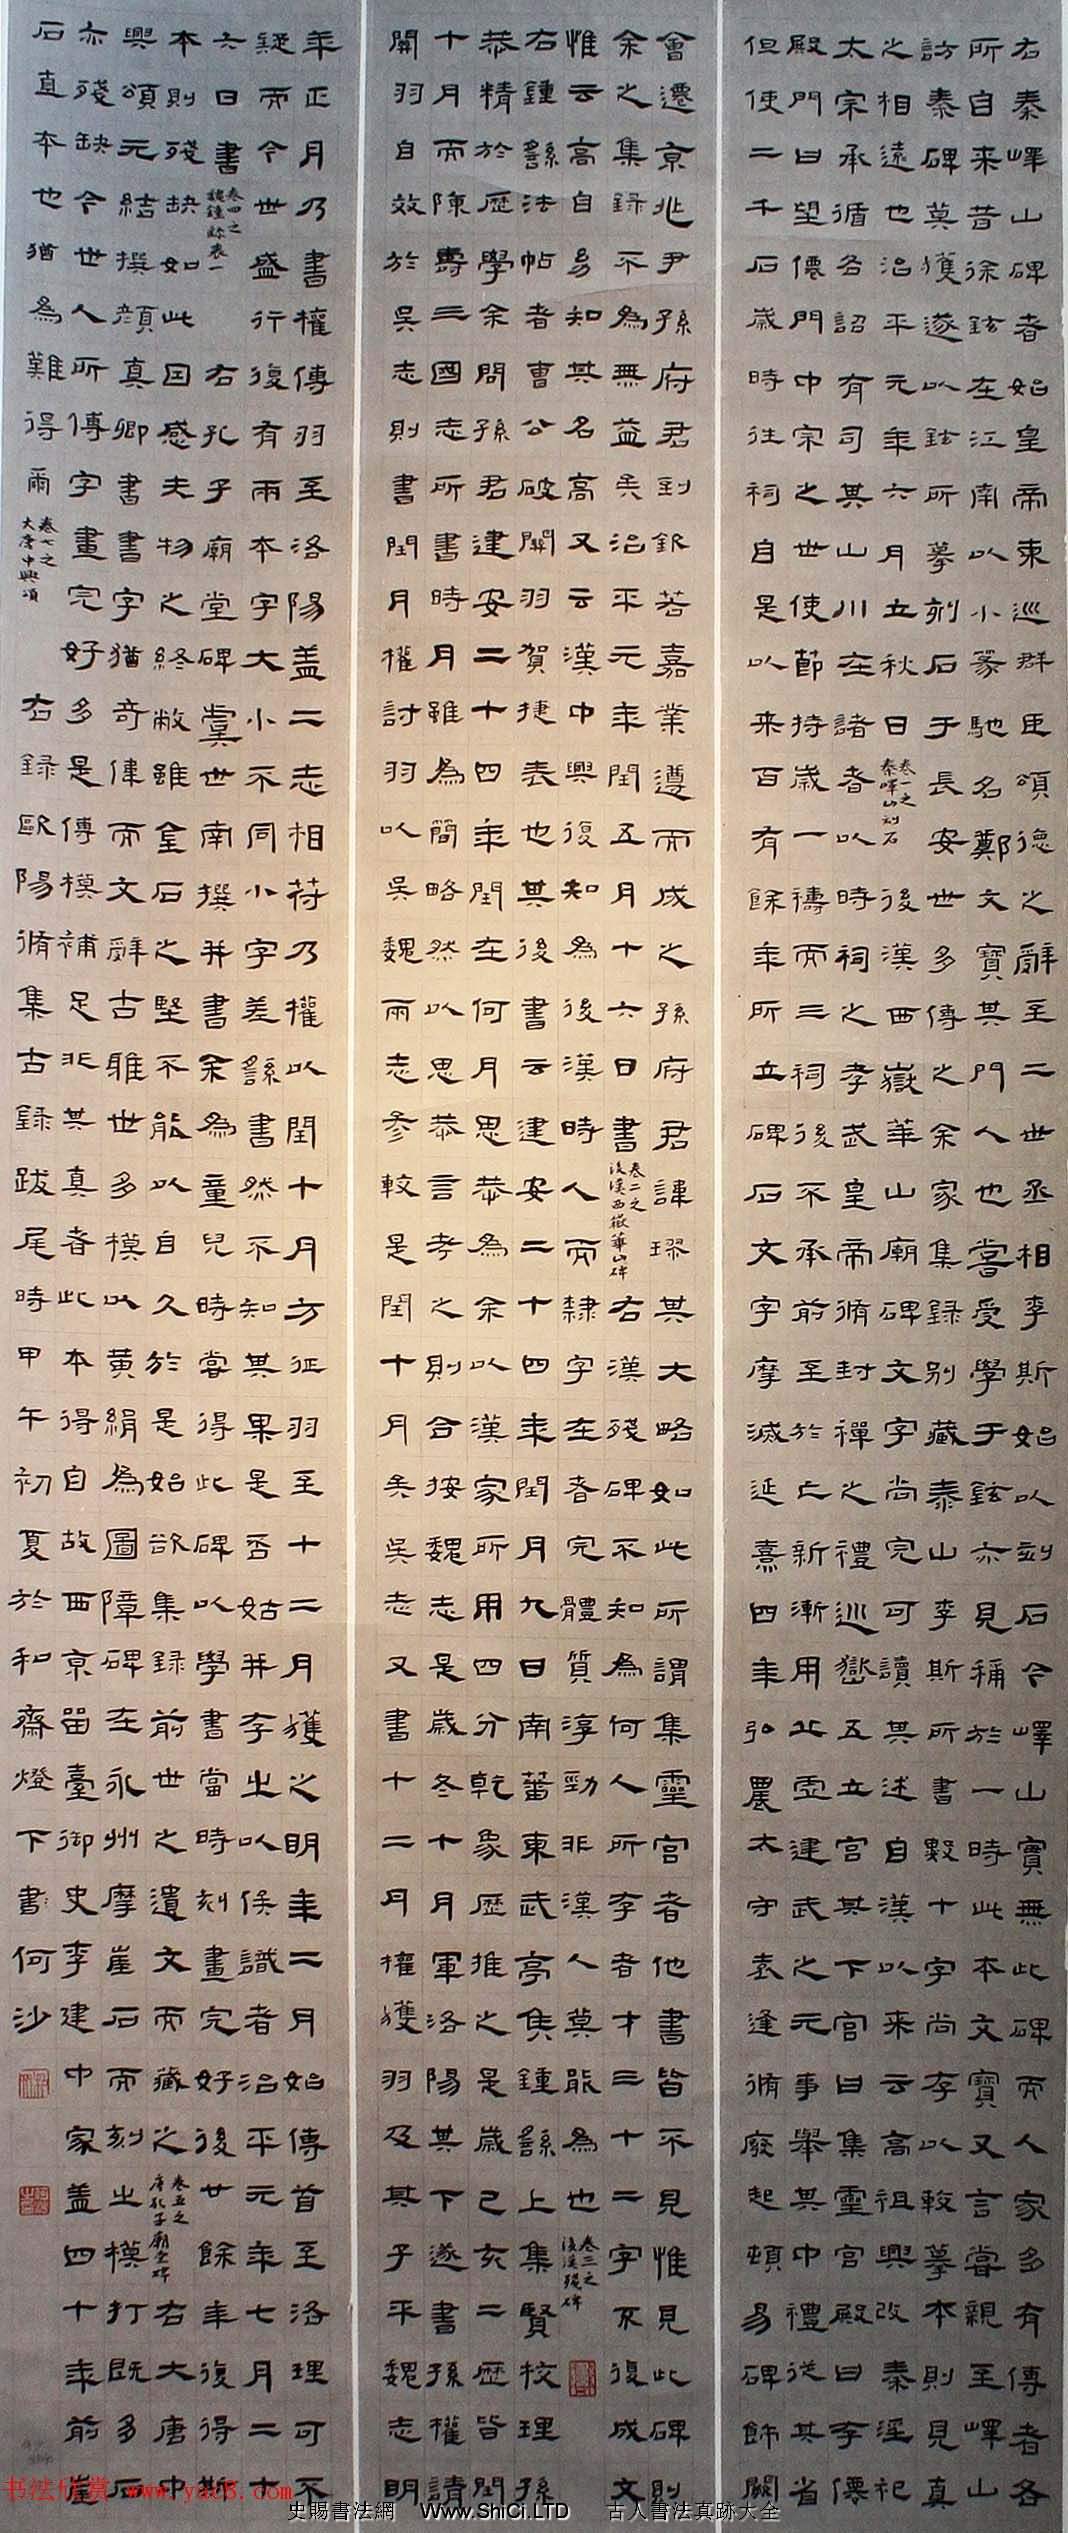 右秦嶧山碑者始皇帝東巡群臣頌德之辭至二世丞相李斯始以刻石今嶧山實無此碑而人家多有傳者各
所自來昔徐鉉在江南以小篆馳名鄭文寶其門人也嘗受學于鉉亦見稱於一時此本文寶又言嘗親至嶧山
訪秦碑莫獲遂以鉉所摹刻石于長安世多傳之余家集錄別藏泰山李斯所書數十字尚存以較摹本則見真
之相遠也治平元年六月立秋日 卷一之秦嶧山刻石 後漢西嶽華山廟碑文字尚完可讀其述自漢以來云高祖興改秦淫祀
太宗承循各詔有司其山川在諸者以時祠之孝武皇帝脩封禪之禮巡嶽五立宮其下宮曰集靈宮殿曰存僊
殿門曰望僊門中宗之世使節持歲一禱而三祠後不承前至於亡新漸用北虛建武之元事舉其中禮從其省
但使二千石歲時往祠自是以來百有餘年所立碑石文字摩滅延熹四年弘農太守袁逢脩廢起頓易碑飾闕
會遷京兆尹孫府君到欽若嘉業遵而成之孫府君諱璆其大略如此所謂集靈宮者他書皆不見惟見此碑則
余之集錄不為無益矣治平元年閏五月十六日書 卷二之後漢西嶽華山碑 右漢殘碑不知為何人所存者才三十二字不復成文
惟云高自易知其名高又云漢中興復知為後漢時人而隸字在者完體質淳勁非漢人莫能為也 卷三之後漢殘碑
右鍾繇法帖者曹公破關羽賀捷表也其後書云建安二十四年閏月九日南蕃東武亭侯鍾繇上集賢校理孫
恭精於歷學余問孫君建安二十四年閏在何月思恭為余以漢家所用四分乾象歷推之是歲己亥二歷皆閏
十月而陳壽三國志所書時月雖為簡略然以思恭言考之則合按魏志是歲冬十月軍洛陽其下遂書孫權請
關羽自效於吳志則書閏月權討羽以吳魏兩志參較是閏十月矣吳志又書十二月權獲羽及其子平魏志明
年正月乃書權傳羽至洛陽蓋二志相符乃權以閏十月方征羽至十二月獲之明年二月始傳首至洛理可不
疑而今世盛行復有兩本字大小不同小字差繇書然不知其果是否姑并存之以俟識者治平元年七月二十
六日書 卷四之魏鍾繇表一 右孔子廟堂碑虞世南撰并書余為童兒時嘗得此碑以學書當時刻畫完好後廿餘年復得斯
本則殘缺如此因感夫物之終敝雖金石之堅不能以自久於是始欲集錄前世之遺文而藏之 卷五之唐孔子廟堂碑 右大唐中
興頌元結撰顏真卿書書字猶奇偉而文辭古雅世多模以黃絹為圖障碑在永州摩崖石而刻之模打既多石
亦殘缺今世人所傳字畫完好多是傳模補足非其真者此本得自故西京留臺御史李建中家蓋四十年前崖
石直本也猶為難得爾 卷七之大唐中興頌 右錄歐陽脩集古錄跋尾時甲午初夏於和齋燈下書何沙
书法欣赏 www.yac8.com
史賜書法網 Www.ShiCi.LTD 古人書法真跡大全